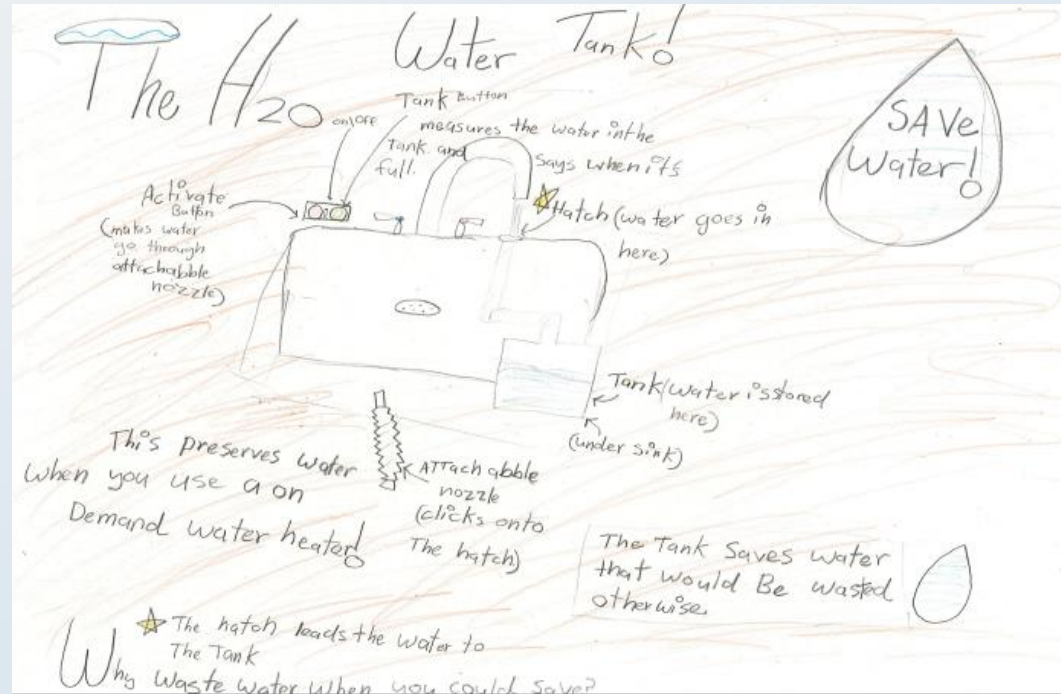 The H2O Water Tank!
SAVe
Water!
on/off
Tank Button
measures the water in the
Tank and
says when its
full.
Activate
Button
(makes water
go through
attachabble
nozzle)
Hatch (water goes in
here)
Tank (water is stored
here)
(under sink)
This preserves water
when you use a on
Demand water heater!
ATTachabble
nozzle
(clicks onto
The hatch)
The Tank Saves water
that would Be wasted
otherwise.
The hatch leads the water to
The Tank
Why waste water when you could save?